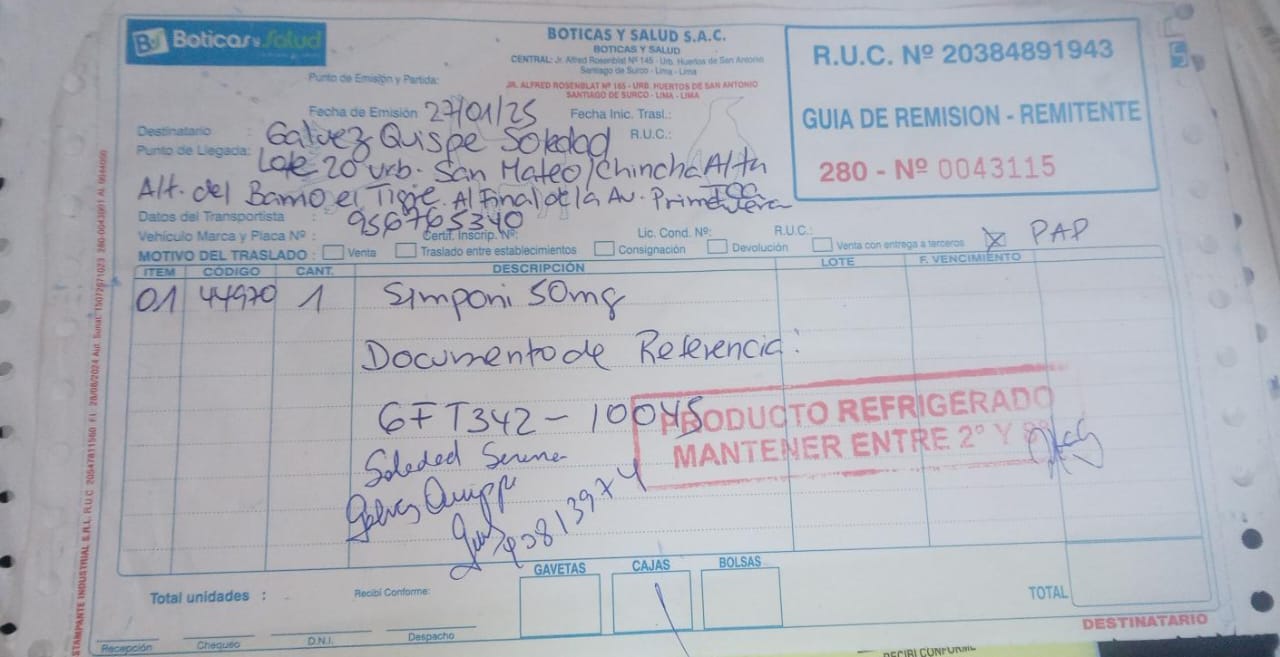 Boticas y Salud
BOTICAS Y SALUD S.A.C.
BOTICAS Y SALUD
CENTRAL: Jr. Alfred Rosenblat Nº 145 - Urb. Huertos de San Antonio
Santiago de Surco - Lima - Lima
Punto de Emisión y Partida:
JR. ALFRED ROSENBLAT Nº 165 - URB. HUERTOS DE SAN ANTONIO
SANTIAGO DE SURCO - LIMA - LIMA
R.U.C. Nº 20384891943
GUIA DE REMISION - REMITENTE
280 - Nº 0043115
Fecha de Emisión 27/01/25 Fecha Inic. Trasl.:
Destinatario : Galvez Quispe Soledad R.U.C.:
Punto de Llegada: Lote 20 urb. San Mateo/Chincha Alta
ICA
Alt. del Barrio el Tigre. Al final de la Av. Primavera
Datos del Transportista : 956765340
Vehículo Marca y Placa Nº : Certif. Inscrip. Nº: Lic. Cond. Nº: R.U.C.:
MOTIVO DEL TRASLADO : Venta Traslado entre establecimientos Consignación Devolución Venta con entrega a terceros X PAP
ITEM CÓDIGO CANT. DESCRIPCIÓN LOTE F. VENCIMIENTO
01 44970 1 Simponi 50mg
Documento de Referencia:
GFT342-10045
PRODUCTO REFRIGERADO
MANTENER ENTRE 2° Y 8°
Soledad
Galvez Quispe
Total unidades : Recibí Conforme: GAVETAS CAJAS BOLSAS
TOTAL
Recepción Chequeo D.N.I. Despacho
DESTINATARIO
RECIBI CONFORME